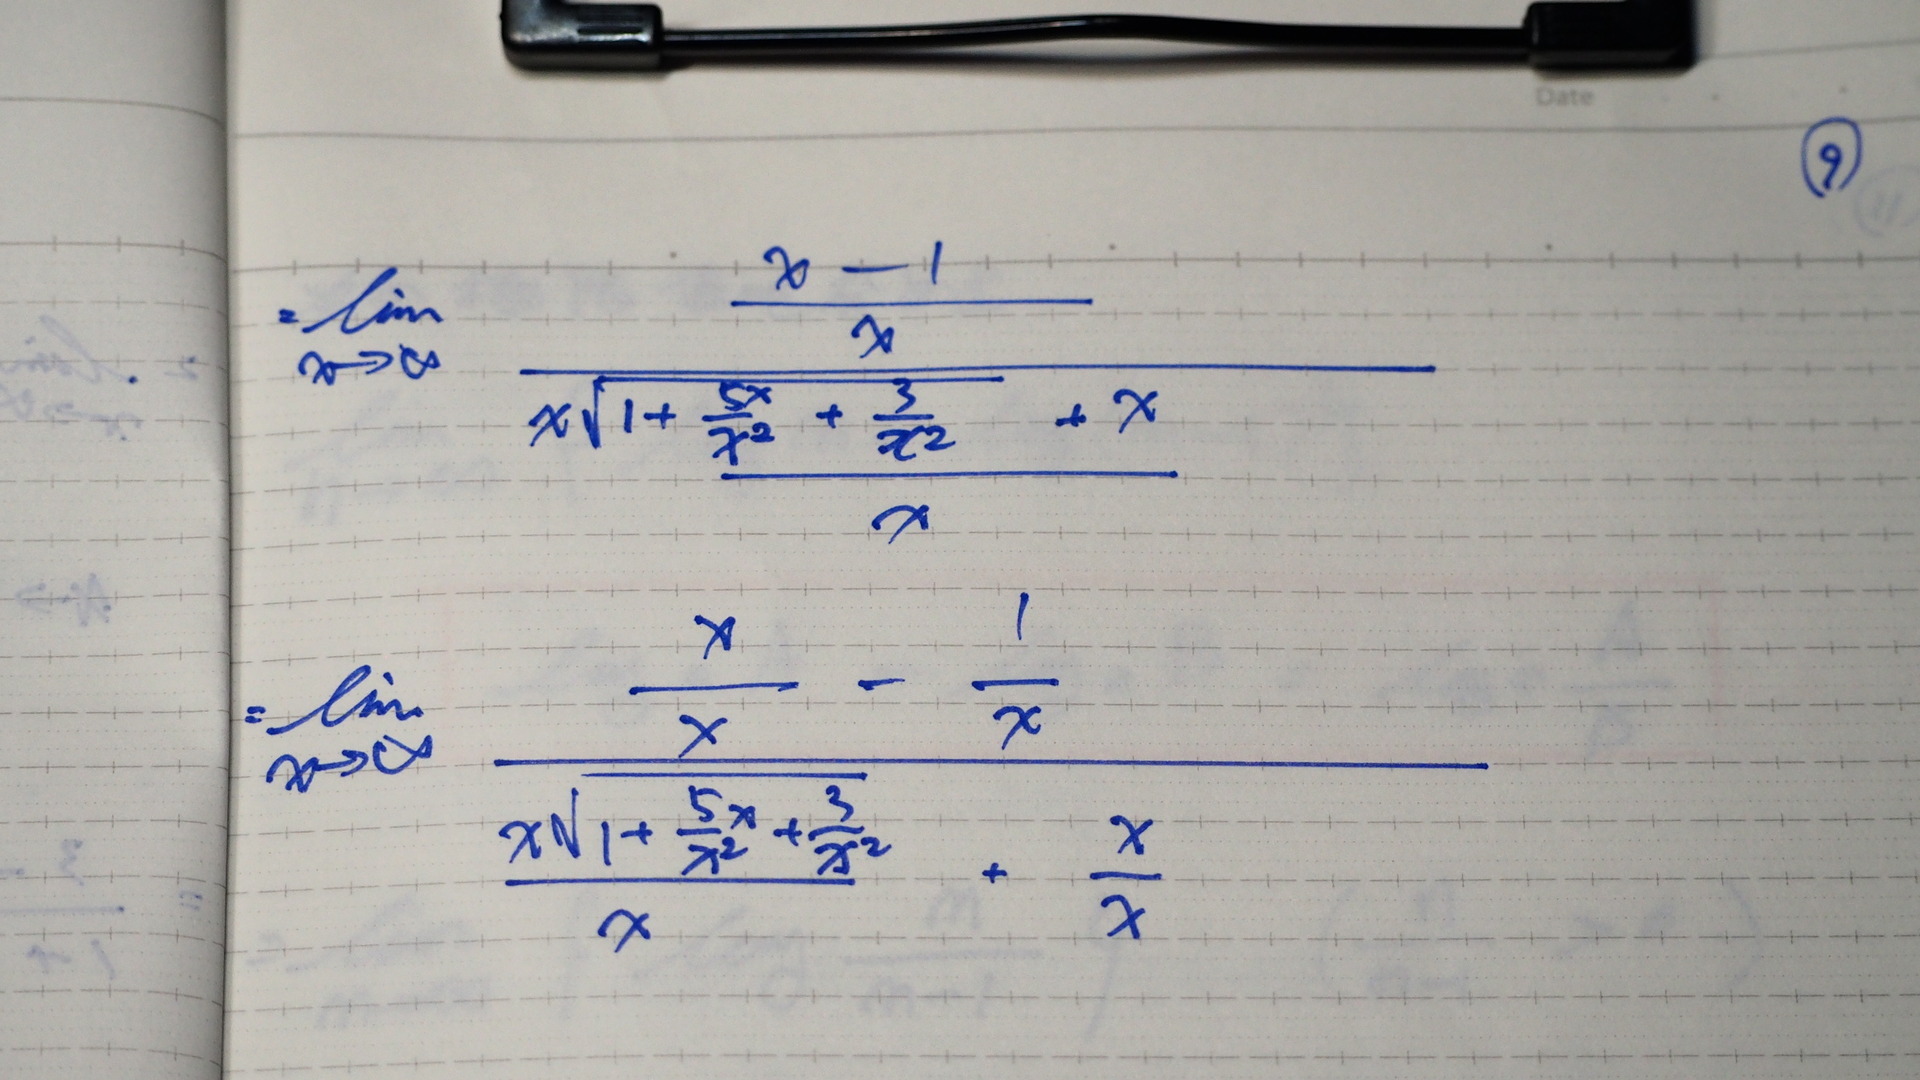 Date
⑨
= lim x→∞ ((x − 1)/x) / ((x√(1 + 5x/x² + 3/x²) + x)/x)
= lim x→∞ (x/x − 1/x) / ((x√(1 + 5x/x² + 3/x²))/x + x/x)